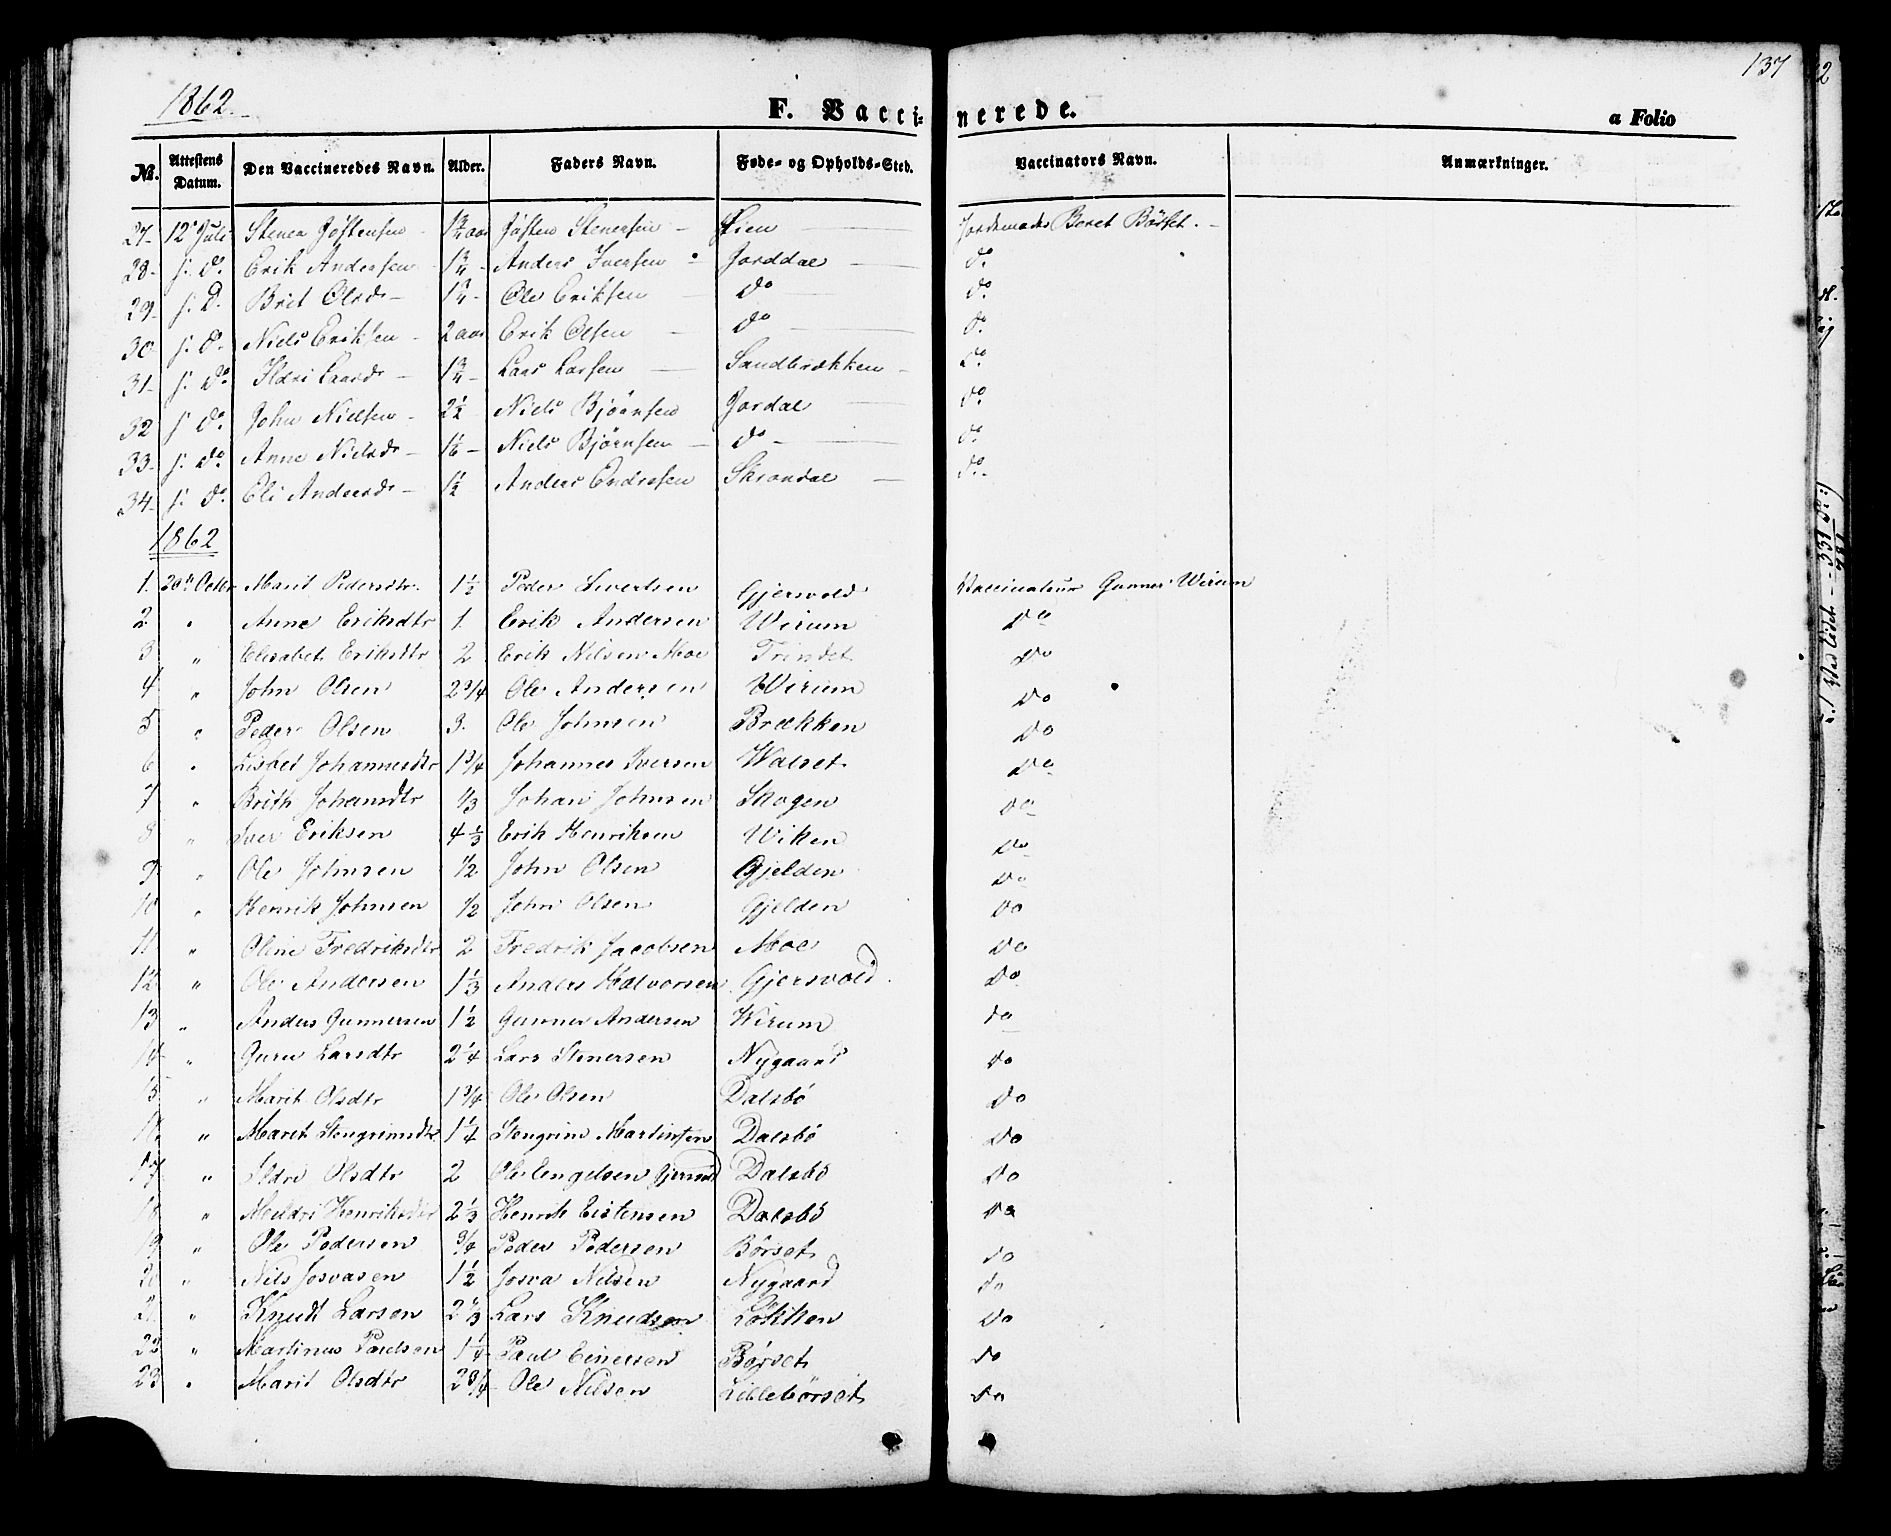 137
1862.
F. Vaccinerede.
a Folio
No. Attestens Datum. Den Vaccineredes Navn. Alder. Faders Navn. Føde- og Opholds-Sted. Vaccinators Navn. Anmærkninger.
27- 12te Juli Stener Jøstensen - 1 3/4 aar Jøsten Stenersen - Øien Jordemoder Beret Børset. -
28- s: do. Erik Andersen 1 3/4 - Anders Iversen - Jorddal do.
29- s: d. Brit Olsdr - 1 3/4 - Ole Eriksen do do.
30 s: d. Niels Eriksen - 2 aar Erik Olsen do do.
31- s: do. Ildri Larsdr - 1 3/4 - Lars Larsen Sandbrækken - do.
32 s do. John Nielsen - 2 1/2 Niels Bjørnsen Jordal do.
33- s: do. Anne Nielsdr - 1 1/2 - Niels Bjørnsen - do - do.
34- s: do. Eli Andersdr - 1 1/2 Anders Endresen Skrondal do. -
1862
1. 20de Octbr Marit Pedersdtr. 1 1/2 Peder Sivertsen Gjersvold Vaccinateur Gunner Wirum
2. " Anne Eriksdtr 1. Erik Andersen Wirum Do
3 " Elisabet Eriksdtr 2 Erik Nilsen Moe Trondet Do
4 " John Olsen 2 3/4 Ole Andersen Wirum Do
5 " Peder Olsen 3. Ole Johnsen Brækken Do
6 " Lisbet Johannesdtr 1 3/4 Johannes Iversen Walset Do
7 " Brith Johansdtr 1/3 Johan Johnsen Skogen Do
8 " Iver Eriksen 4 1/3 Erik Henriksen Wiken Do
9 " Ole Johnsen 1/2 John Olsen Gjelden Do
10 " Henrik Johnsen 1/2 John Olsen Gjelden Do
11 " Oline Fredriksdtr 2 Fredrik Jacobsen Moe Do
12 " Ole Andersen 1 1/3 Anders Halvorsen Gjersvold. Do
13 " Anders Gunnersen 1 1/2 Gunner Andersen Wirum Do
14 " Guru Larsdtr 2 1/4 Lars Stenersen Nygaard Do
15 " Marit Olsdtr 1 3/4 Ole Olsen Dalsbø Do
16. " Maret Stengrimsdtr. 1 1/4 Stengrim Martinsen Dalsbø Do
17 " Ildri Olsdtr 2 Ole Engelsen Gjersvold Dalsbø Do
18 " Meldri Henriksdtr 2 1/3 Henrik Eistensen Dalsbø Do
19 " Ole Pedersen 3/4 Peder Pedersen Børset Do
20 " Nils Josvasen 1 1/2 Josva Nilsen Nygaard Do
21 " Knudt Larsen 2 1/3 Lars Knudsen Løkken Do
22 " Martinus Paulsen 1 1/4 Paul Einersen Børset Do
23 " Marit Olsdtr 2 3/4 Ole Nilsen Lillebørset Do